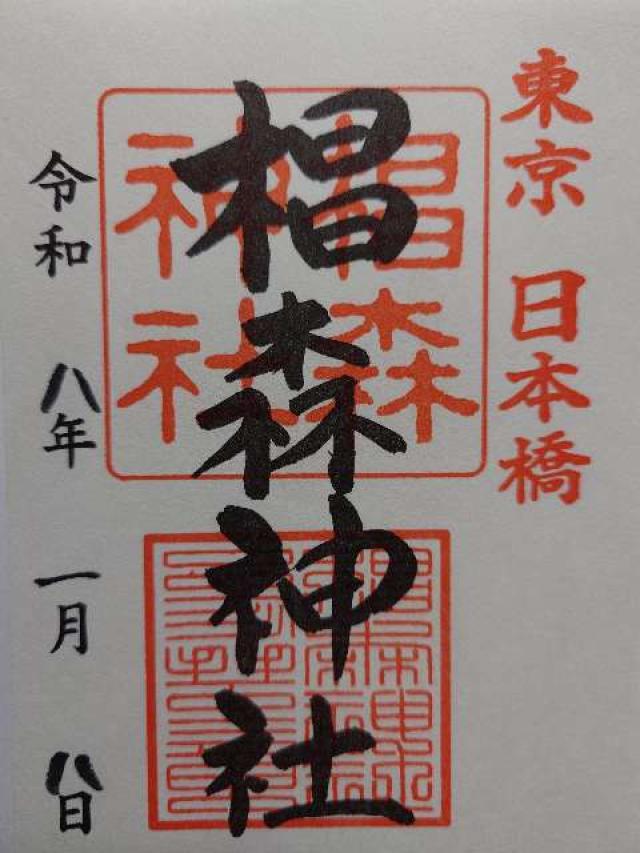 東京 日本橋
椙森神社
椙森
神社
令和 八年 一月 八日